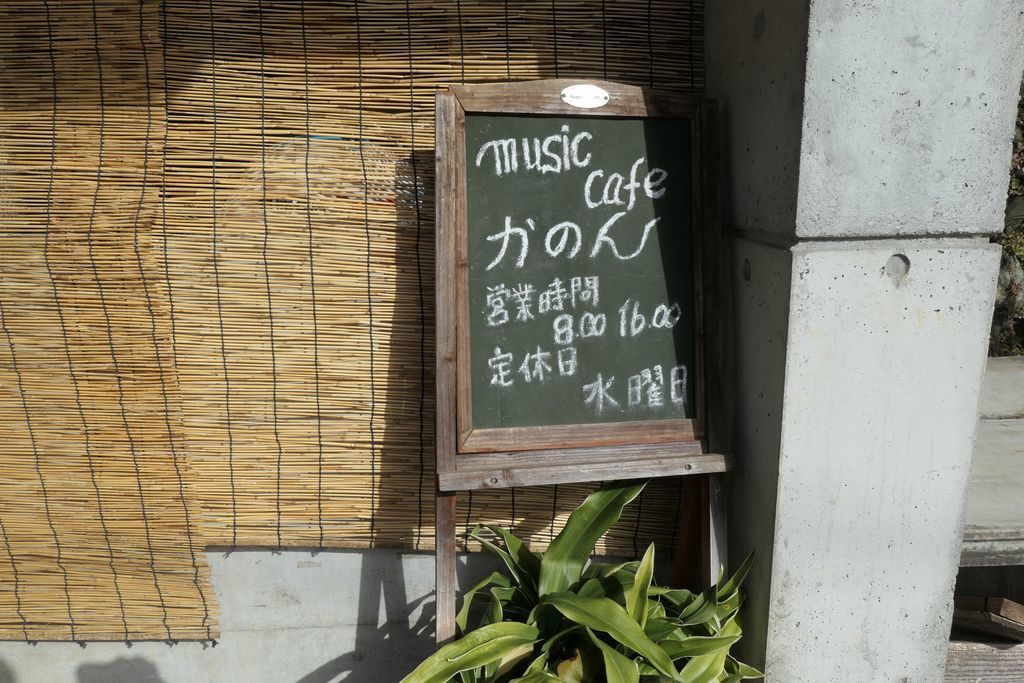 music
cafe
かのん
営業時間
8.00 16.00
定休日
水曜日